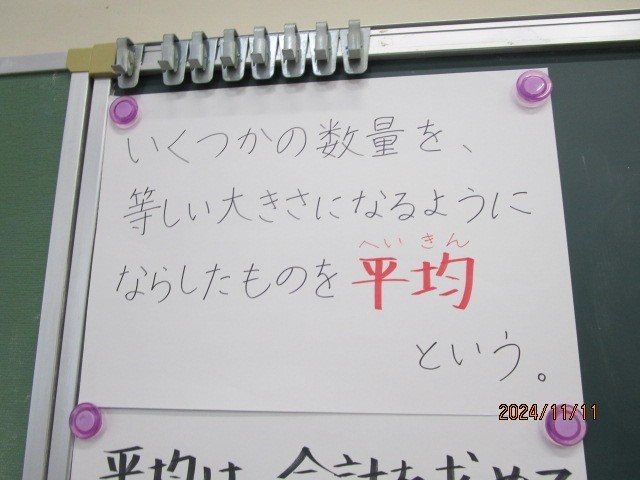 いくつかの数量を、
等しい大きさになるように
へいきん
ならしたものを平均
という。
2024/11/11
平均は、合計を求めて